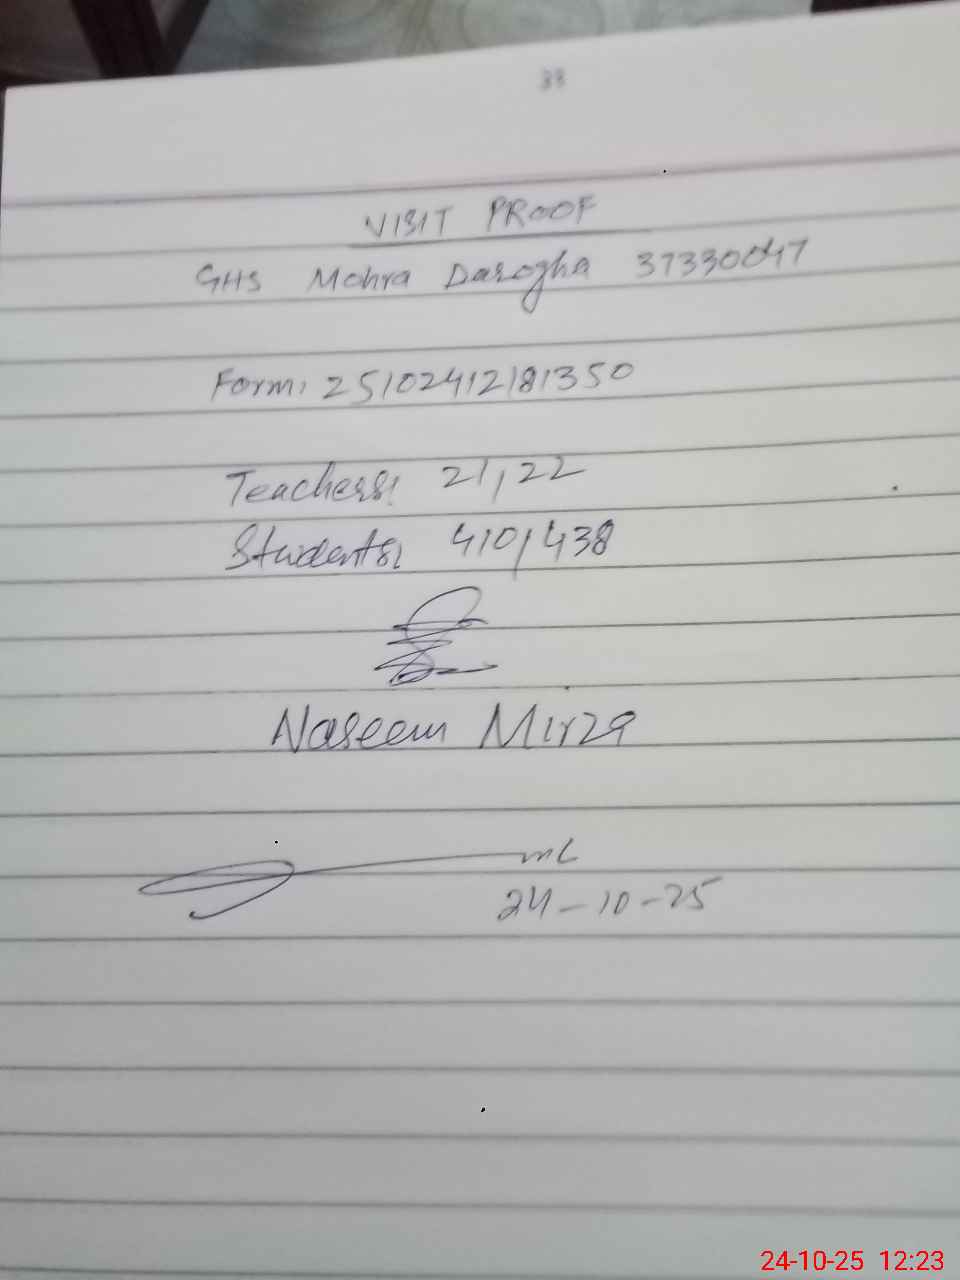 33
VISIT PROOF
GHS Mohra Darogha 37330047
Form: 25102412181350
Teachers: 21/22
Students: 410/438
Naseem Mirza
24-10-25
24-10-25 12:23